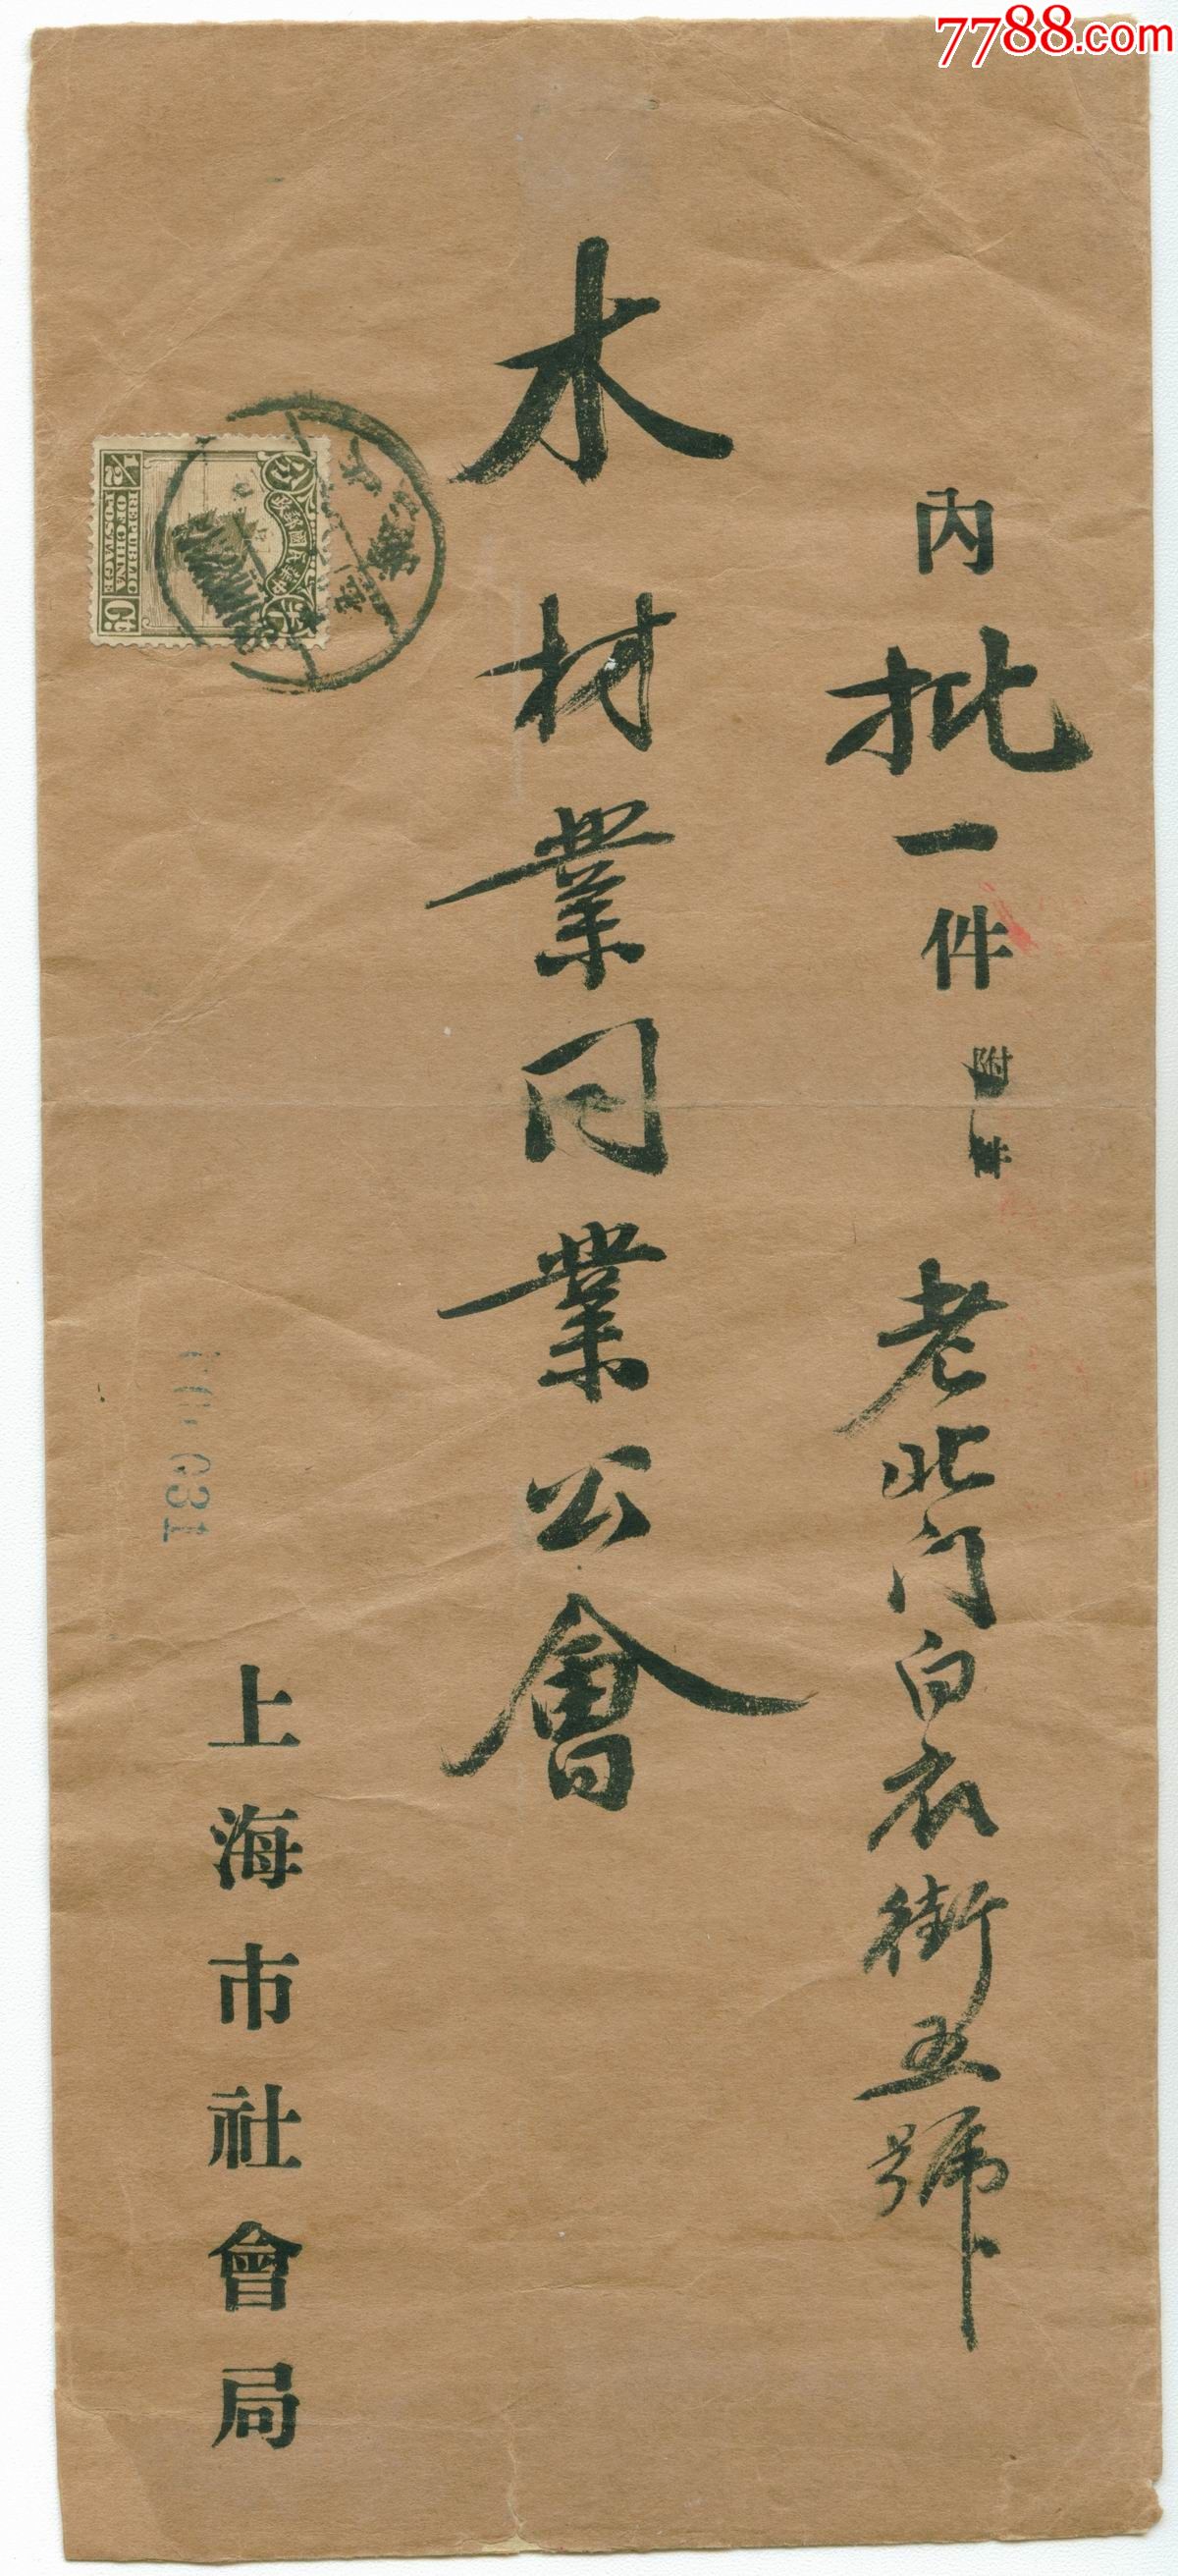 7788.com
內批一件 附 件
老北门白衣街五號
木材業同業公會
上海市社會局
031
半分
中華民國郵政
REPUBLIC
OF CHINA
POSTAGE
1/2 Ct.
SHANGHAI
上海